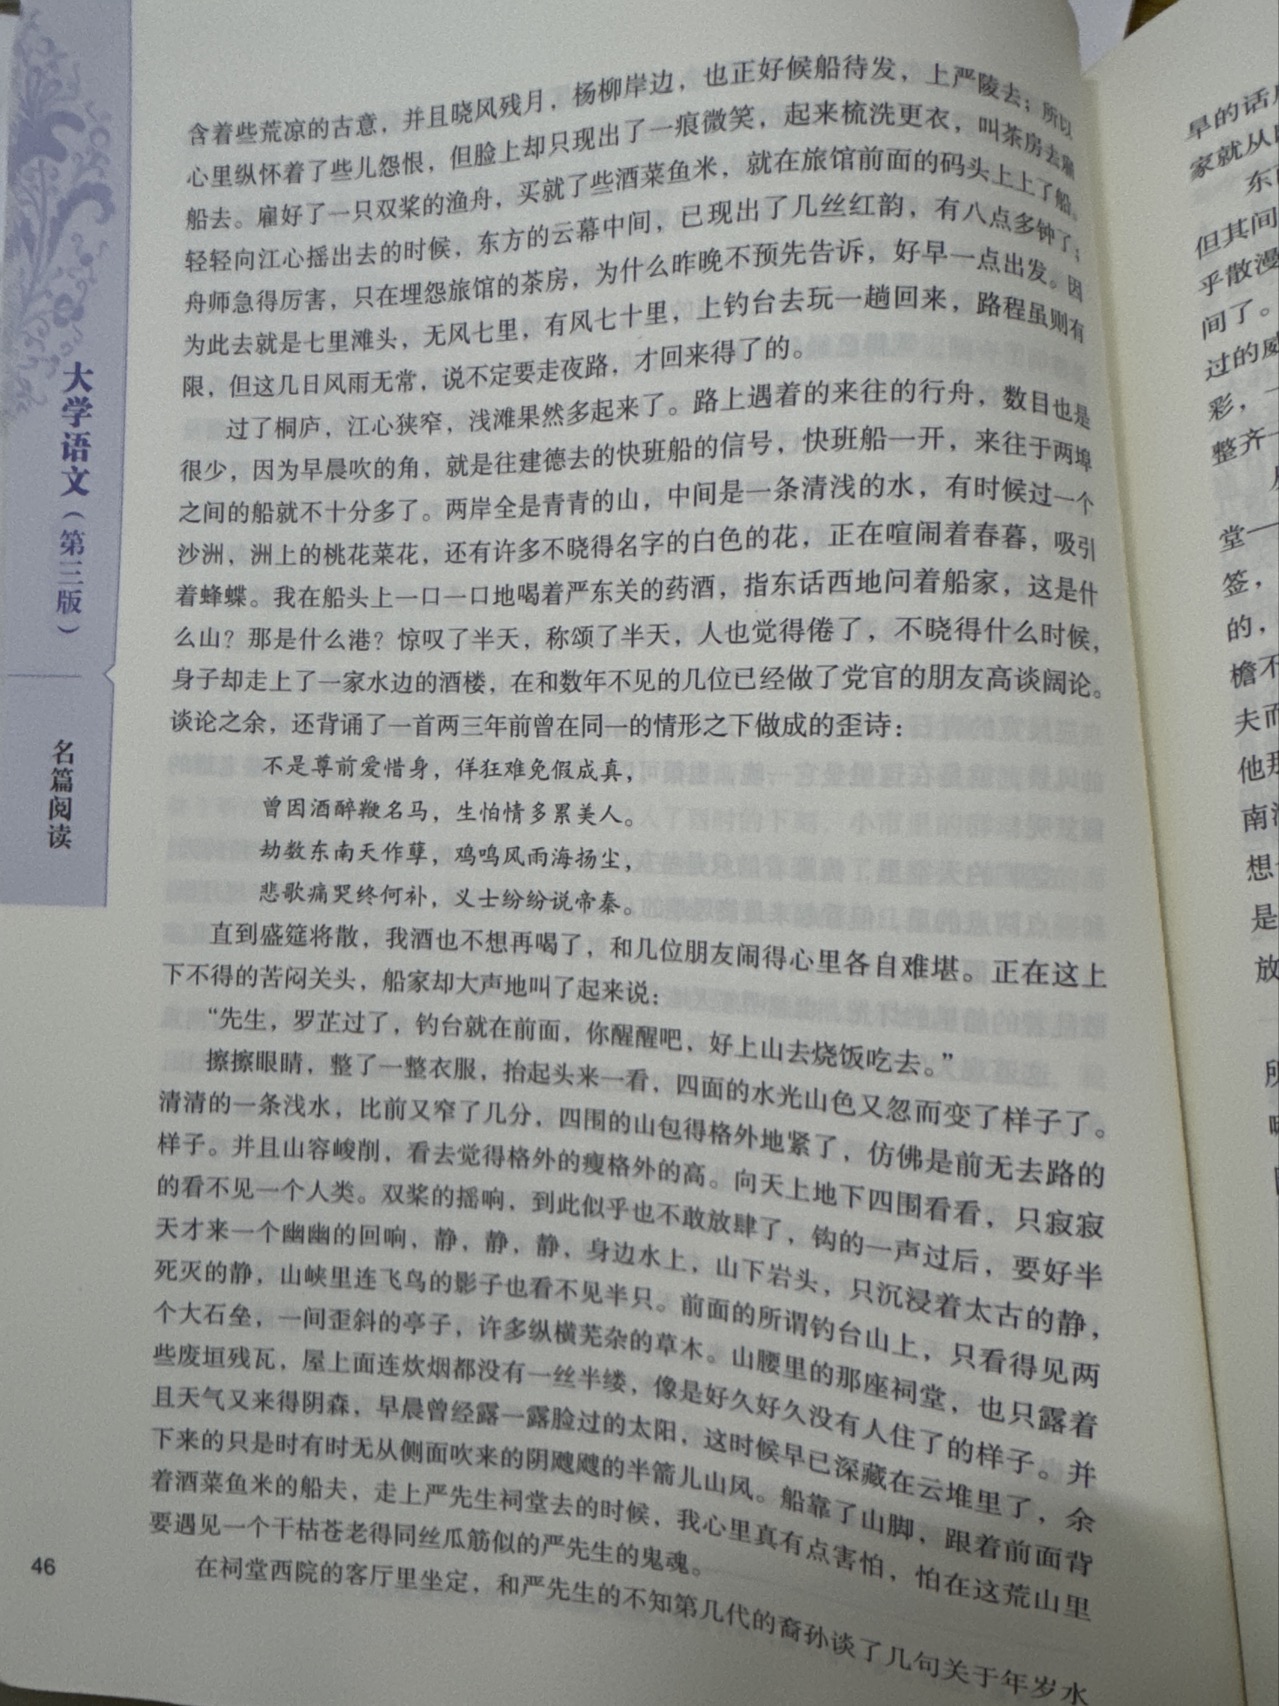 含着些荒凉的古意，并且晓风残月，杨柳岸边，也正好候船待发，上严陵去；所以
心里纵怀着了些儿怨恨，但脸上却只现出了一痕微笑，起来梳洗更衣，叫茶房去雇
船去。雇好了一只双桨的渔舟，买就了些酒菜鱼米，就在旅馆前面的码头上上了船。
轻轻向江心摇出去的时候，东方的云幕中间，已现出了几丝红韵，有八点多钟了；
舟师急得厉害，只在埋怨旅馆的茶房，为什么昨晚不预先告诉，好早一点出发。因
为此去就是七里滩头，无风七里，有风七十里，上钓台去玩一趟回来，路程虽则有
限，但这几日风雨无常，说不定要走夜路，才回来得了的。
过了桐庐，江心狭窄，浅滩果然多起来了。路上遇着的来往的行舟，数目也是
很少，因为早晨吹的角，就是往建德去的快班船的信号，快班船一开，来往于两埠
之间的船就不十分多了。两岸全是青青的山，中间是一条清浅的水，有时候过一个
沙洲，洲上的桃花菜花，还有许多不晓得名字的白色的花，正在喧闹着春暮，吸引
着蜂蝶。我在船头上一口一口地喝着严东关的药酒，指东话西地问着船家，这是什
么山？那是什么港？惊叹了半天，称颂了半天，人也觉得倦了，不晓得什么时候，
身子却走上了一家水边的酒楼，在和数年不见的几位已经做了党官的朋友高谈阔论。
谈论之余，还背诵了一首两三年前曾在同一的情形之下做成的歪诗：
不是尊前爱惜身，佯狂难免假成真，
曾因酒醉鞭名马，生怕情多累美人。
劫数东南天作孽，鸡鸣风雨海扬尘，
悲歌痛哭终何补，义士纷纷说帝秦。
直到盛筵将散，我酒也不想再喝了，和几位朋友闹得心里各自难堪。正在这上
下不得的苦闷关头，船家却大声地叫了起来说：
“先生，罗芷过了，钓台就在前面，你醒醒吧，好上山去烧饭吃去。”
擦擦眼睛，整了一整衣服，抬起头来一看，四面的水光山色又忽而变了样子了。
清清的一条浅水，比前又窄了几分，四围的山包得格外地紧了，仿佛是前无去路的
样子。并且山容峻削，看去觉得格外的瘦格外的高。向天上地下四围看看，只寂寂
的看不见一个人类。双桨的摇响，到此似乎也不敢放肆了，钩的一声过后，要好半
天才来一个幽幽的回响，静，静，静，身边水上，山下岩头，只沉浸着太古的静，
死灭的静，山峡里连飞鸟的影子也看不见半只。前面的所谓钓台山上，只看得见两
个大石垒，一间歪斜的亭子，许多纵横芜杂的草木。山腰里的那座祠堂，也只露着
些废垣残瓦，屋上面连炊烟都没有一丝半缕，像是好久好久没有人住了的样子。并
且天气又来得阴森，早晨曾经露一露脸过的太阳，这时候早已深藏在云堆里了，余
下来的只是时有时无从侧面吹来的阴飕飕的半箭儿山风。船靠了山脚，跟着前面背
着酒菜鱼米的船夫，走上严先生祠堂去的时候，我心里真有点害怕，怕在这荒山里
要遇见一个干枯苍老得同丝瓜筋似的严先生的鬼魂。
在祠堂西院的客厅里坐定，和严先生的不知第几代的裔孙谈了几句关于年岁水
大学语文（第三版）
名篇阅读
46
家就从
但其间
乎散漫
间了。
彩，一
整齐
堂一
签，
的，
檐不
夫而
他那
想
是
放